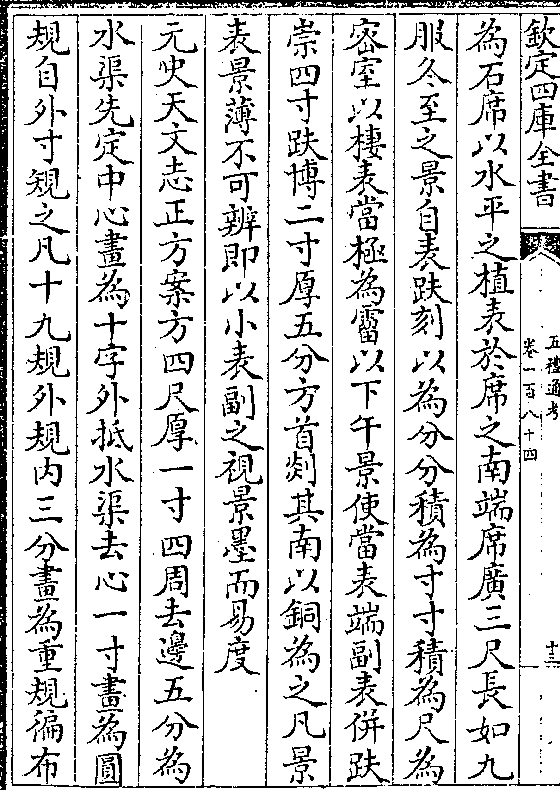 欽定四庫全書
五禮通考
卷一百八十四
十三
為石席以水平之植表於席之南端席廣三尺長如九
服冬至之景自表趺刻以為分分積為寸寸積為尺為
密室以棲表當極為霤以下午景使當表端副表併趺
崇四寸趺博二寸厚五分方首剡其南以銅為之凡景
表景薄不可辨即以小表副之視景墨而易度
元史天文志正方案方四尺厚一寸四周去邊五分為
水渠先定中心畫為十字外抵水渠去心一寸畫為圓
規自外寸規之凡十九規外規内三分畫為重規徧布